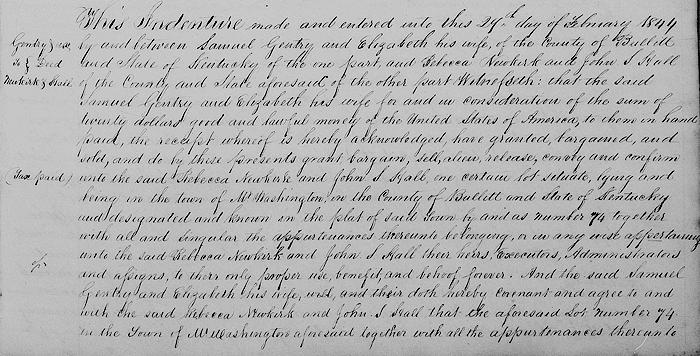 This Indenture made and entered into this 29th day of February 1844
Gentry & ux by and between Samuel Gentry and Elizabeth his wife, of the County of Bullitt
To } Deed and State of Kentucky of the one part, and Rebecca Newkirk and John S Hall
Newkirk & Hall of the County and State aforesaid of the other part Witnesseth: that the said
Samuel Gentry and Elizabeth his wife for and in consideration of the sum of
twenty dollars good and lawful money of the United States of America, to them in hand
paid, the receipt whereof is hereby acknowledged, have granted, bargained, and
sold, and do by these presents grant bargain, sell, alien, release, convey and confirm
(Tax paid) unto the said Rebecca Newkirk and John S Hall, one certain lot situate, lying and
being in the town of Mt Washington, in the County of Bullitt and State of Kentucky
and designated and known in the plat of said town by and as number 74 together
with all and singular the appurtenances thereunto belonging, or in any wise appertaining
unto the said Rebecca Newkirk and John S Hall their heirs, Executors, Administrators
and assigns, to their only proper use, benefit, and behoof forever. And the said Samuel
Gentry and Elizabeth his wife, will, and their doth hereby covenant and agree to and
with the said Rebecca Newkirk and John S Hall that the aforesaid Lot number 74
in the Town of Mt Washington aforesaid together with all the appurtenances thereunto